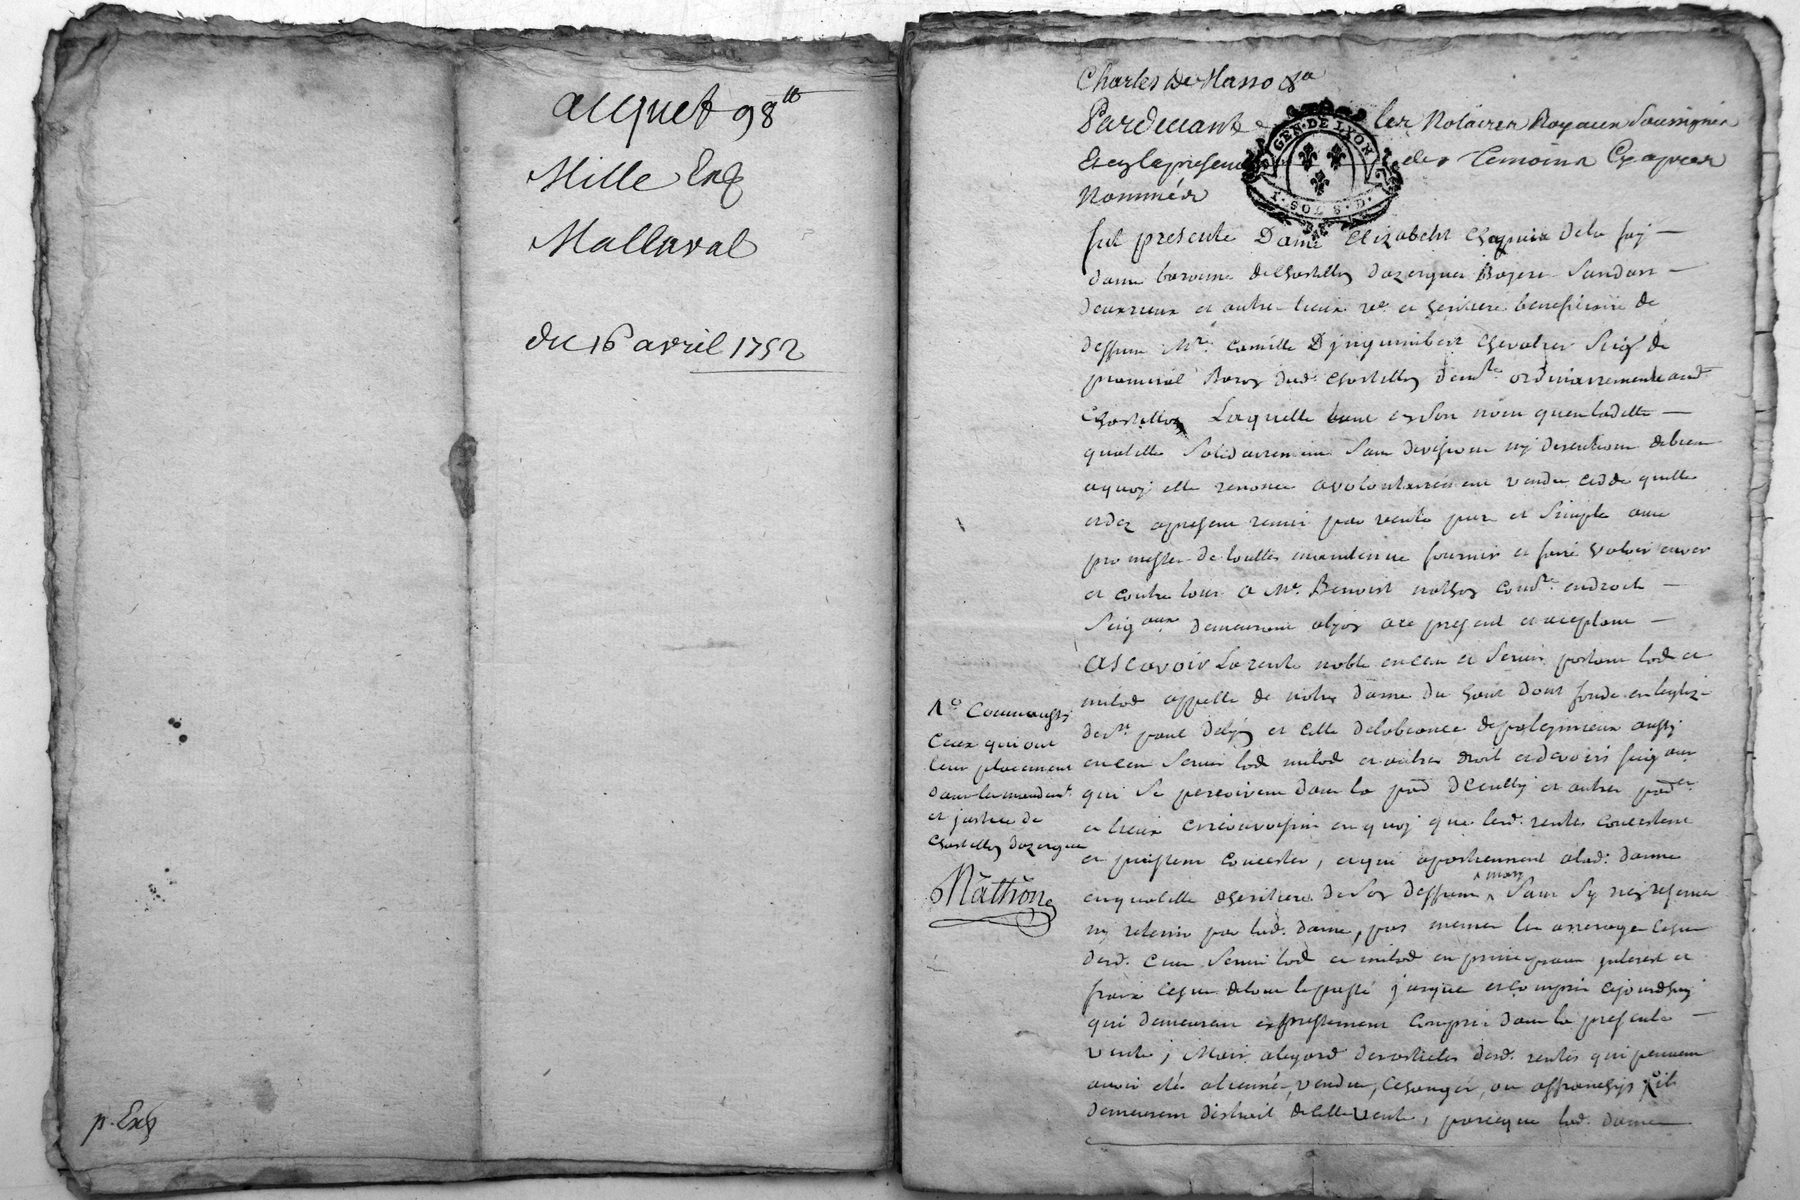 acquet 98tt
Mille Exp
Mallaval
du 16 avril 1752
p. Exp
Charles de Masso &a
Pardevant les Notaires Royaux Soussignés
Et en la presence des Temoins Cy apres
Nommés
GEN. DE LYON
SOL S. D.
fut presente Dame Elizabeht de la foy
dame baronne de Chastillon dazergues Bozere Sandars
et autre lieux ve. et heritiere beneficiaire de
deffunt Mre. Camille Dinguimbert Chevalier Seigr de
pramiral Baron dud. Chastillon demte ordinairement aud
Chastillon Laquelle tant en son nom quen ladette
qualitte Solidairement Sans division ny discution de bien
a quoy elle renonce a volontairement vendu ceddé quitte
et des apresent remis par vente pure et Simple avec
promesse de touttes maintenue fournir et faire valoir envers
et contre tous a Me. Benoist nathon en droit
Seigaux demeurant a lyon a ce present et acceptant
Ascavoir La rente noble en cens et Servis portant lod et
milod appellé de notre dame du haut dont fondé en leglize
de St. paul de lyon et celle de labeance de poleymieux aussy
en cens Servis lod milod et autres droit et devoirs seigaux
qui se percoivent dans la pass Decully et autres passes
et lieux circonvoisin en quoy que lesd. rentes concistent
et puissent concister, et qui apartiennent a lad. dame
en qualitte dheritiere de Son deffunt mary Sans Sy rien reserver
ny retenir par lad. dame, pas meme les arrerages
desd. Cens Servis lod et milod en principaux interest et
frais de tout le passé jusque et compris cejourdhuy
qui demeurent expressement Compris dans la presente
vente; Mais a legard des articles desd. rentes qui peuvent
avoir eté aliené, vendu, Echangé, ou affranchys, ils
demeurent distrait de cette vente, parceque lad. dame
ceux qui ont
leur placement
dans le mandemt
et justice de
Chastillon dazergue
Nathon